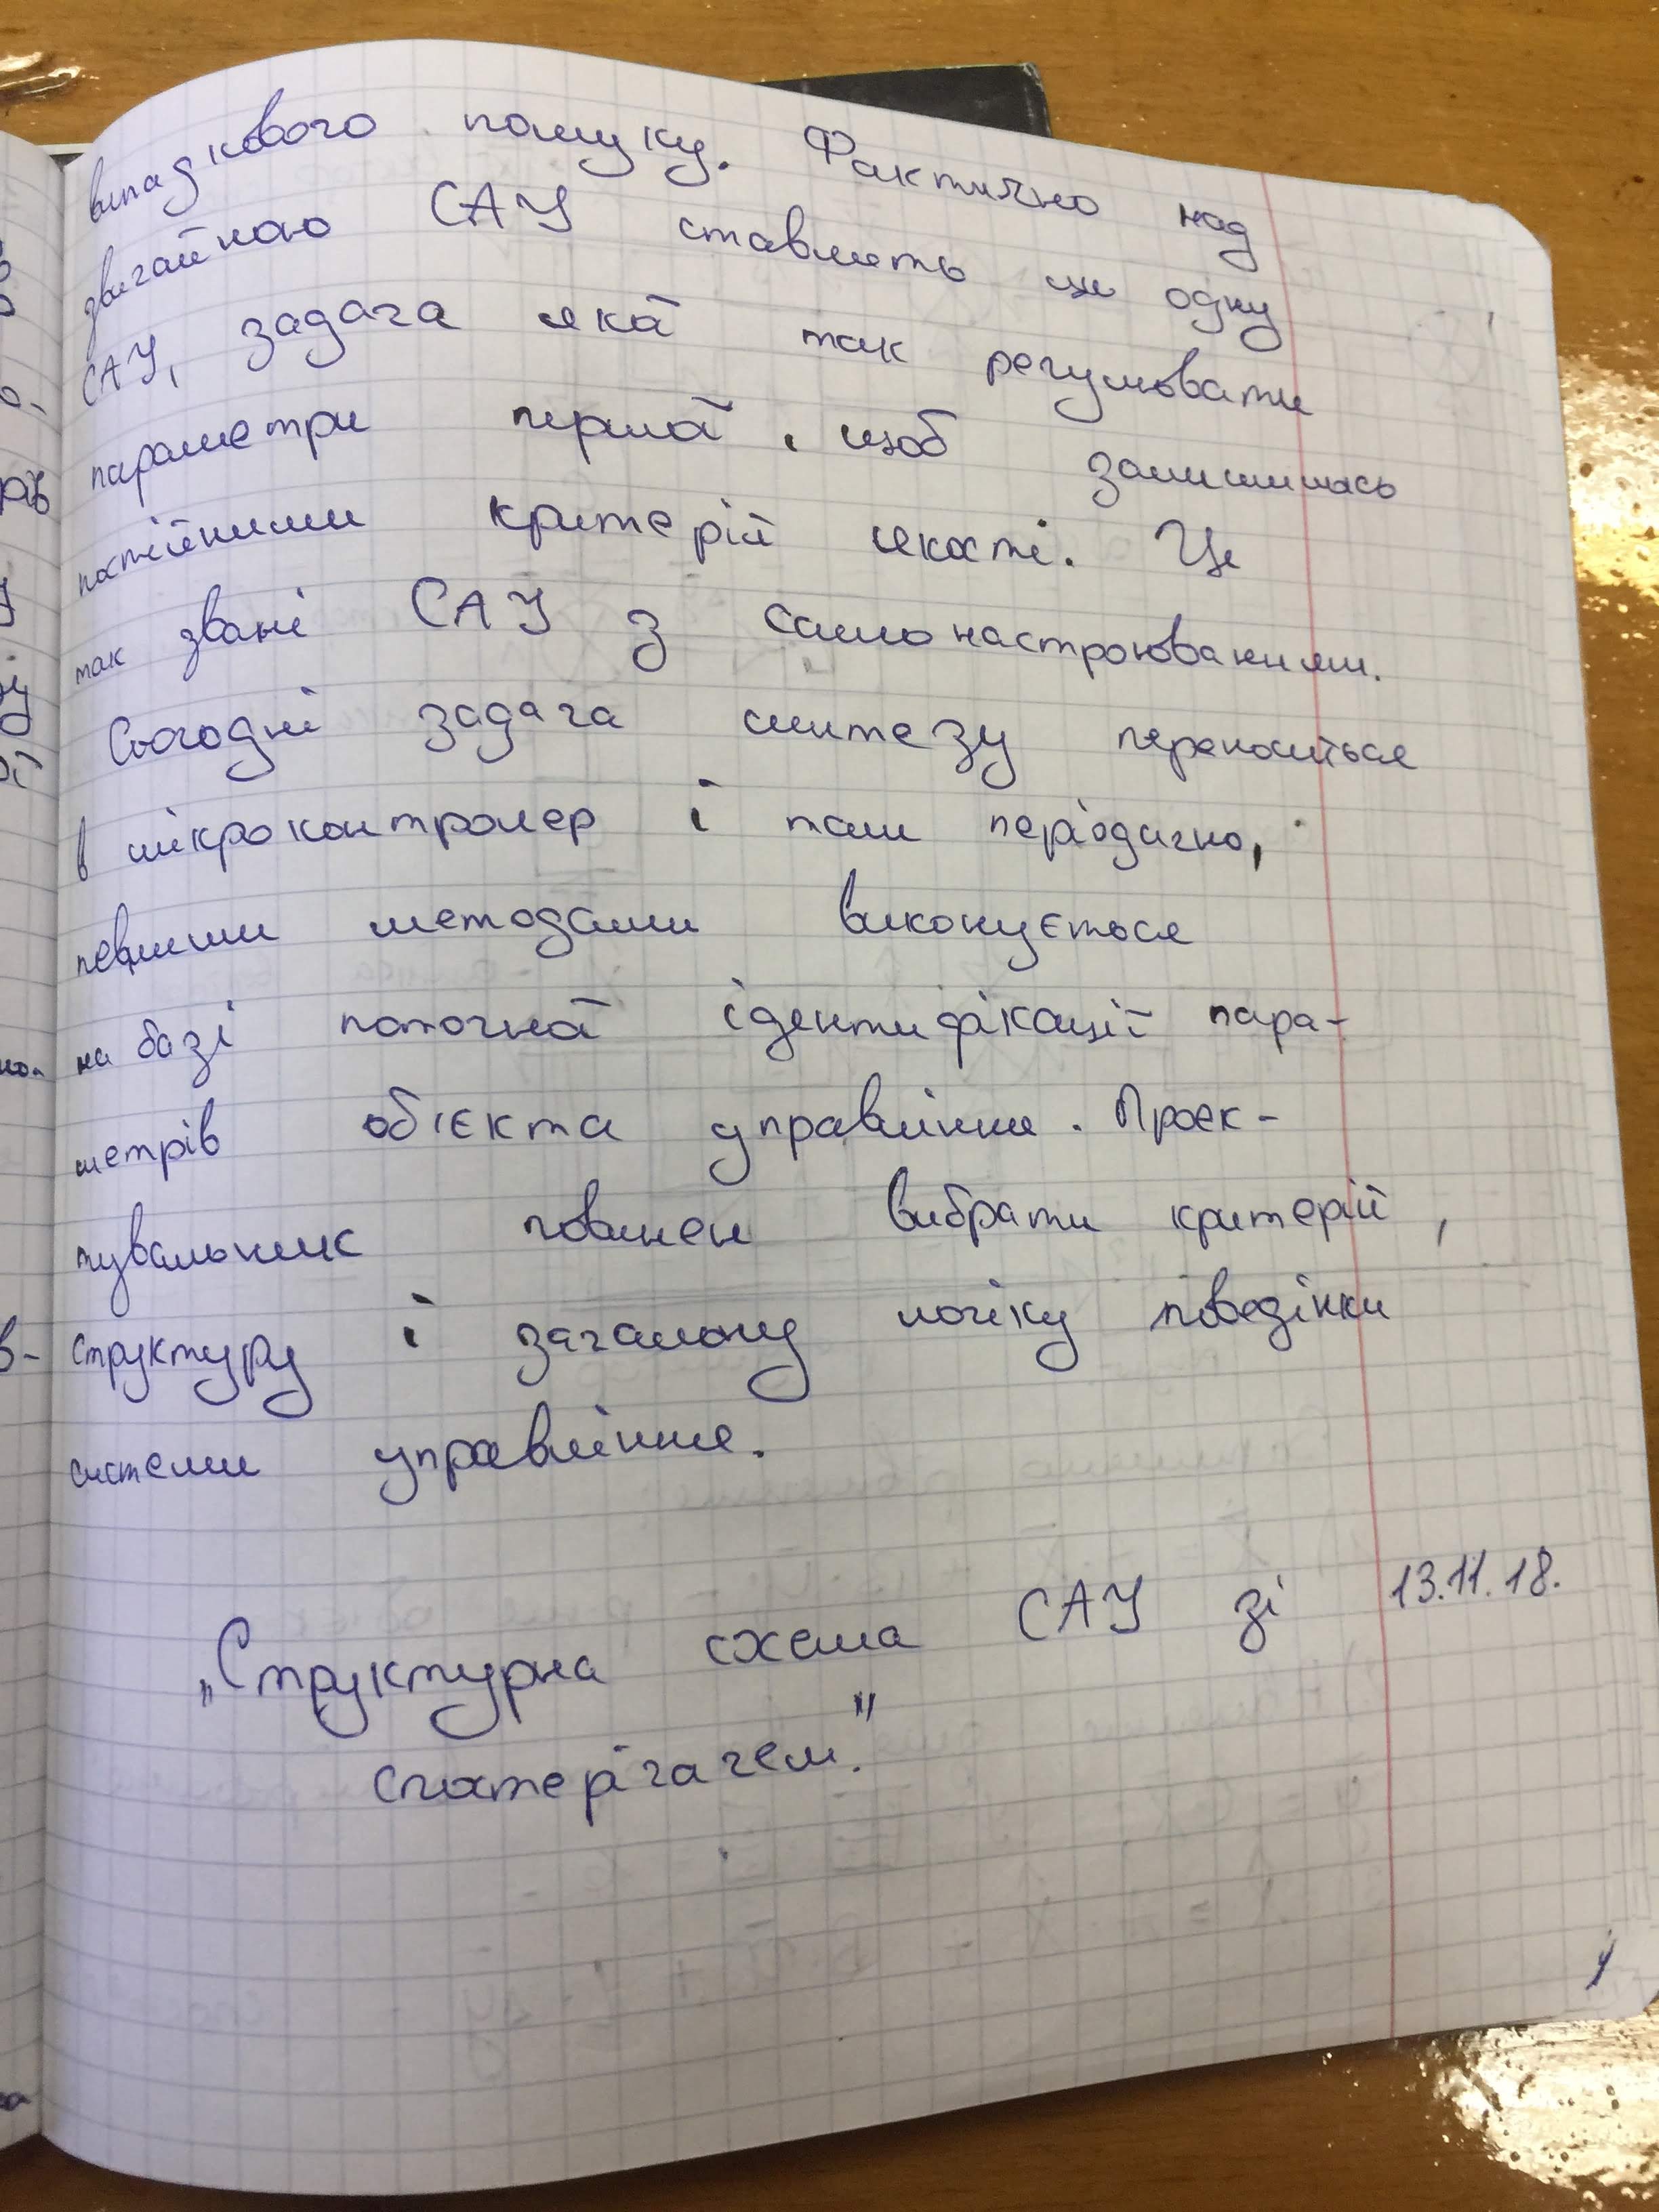 випадкового пошуку. Фактично над
звичайною САУ ставить ще одну
САУ, задача якої так регулювати
параметри першої, щоб залишилась
постійними критерій якості. Це
так звані САУ з самонастроюваннями.
Сьогодні задача синтезу переноситься
в мікроконтролер і там періодично,
певними методами виконується
на базі поточної ідентифікації пара-
метрів об'єкта управління. Проек-
тувальник повинен вибрати критерій,
структуру і загальну логіку поведінки
системи управління.
13.11.18.
„Структурна схема САУ зі
спостерігачем."